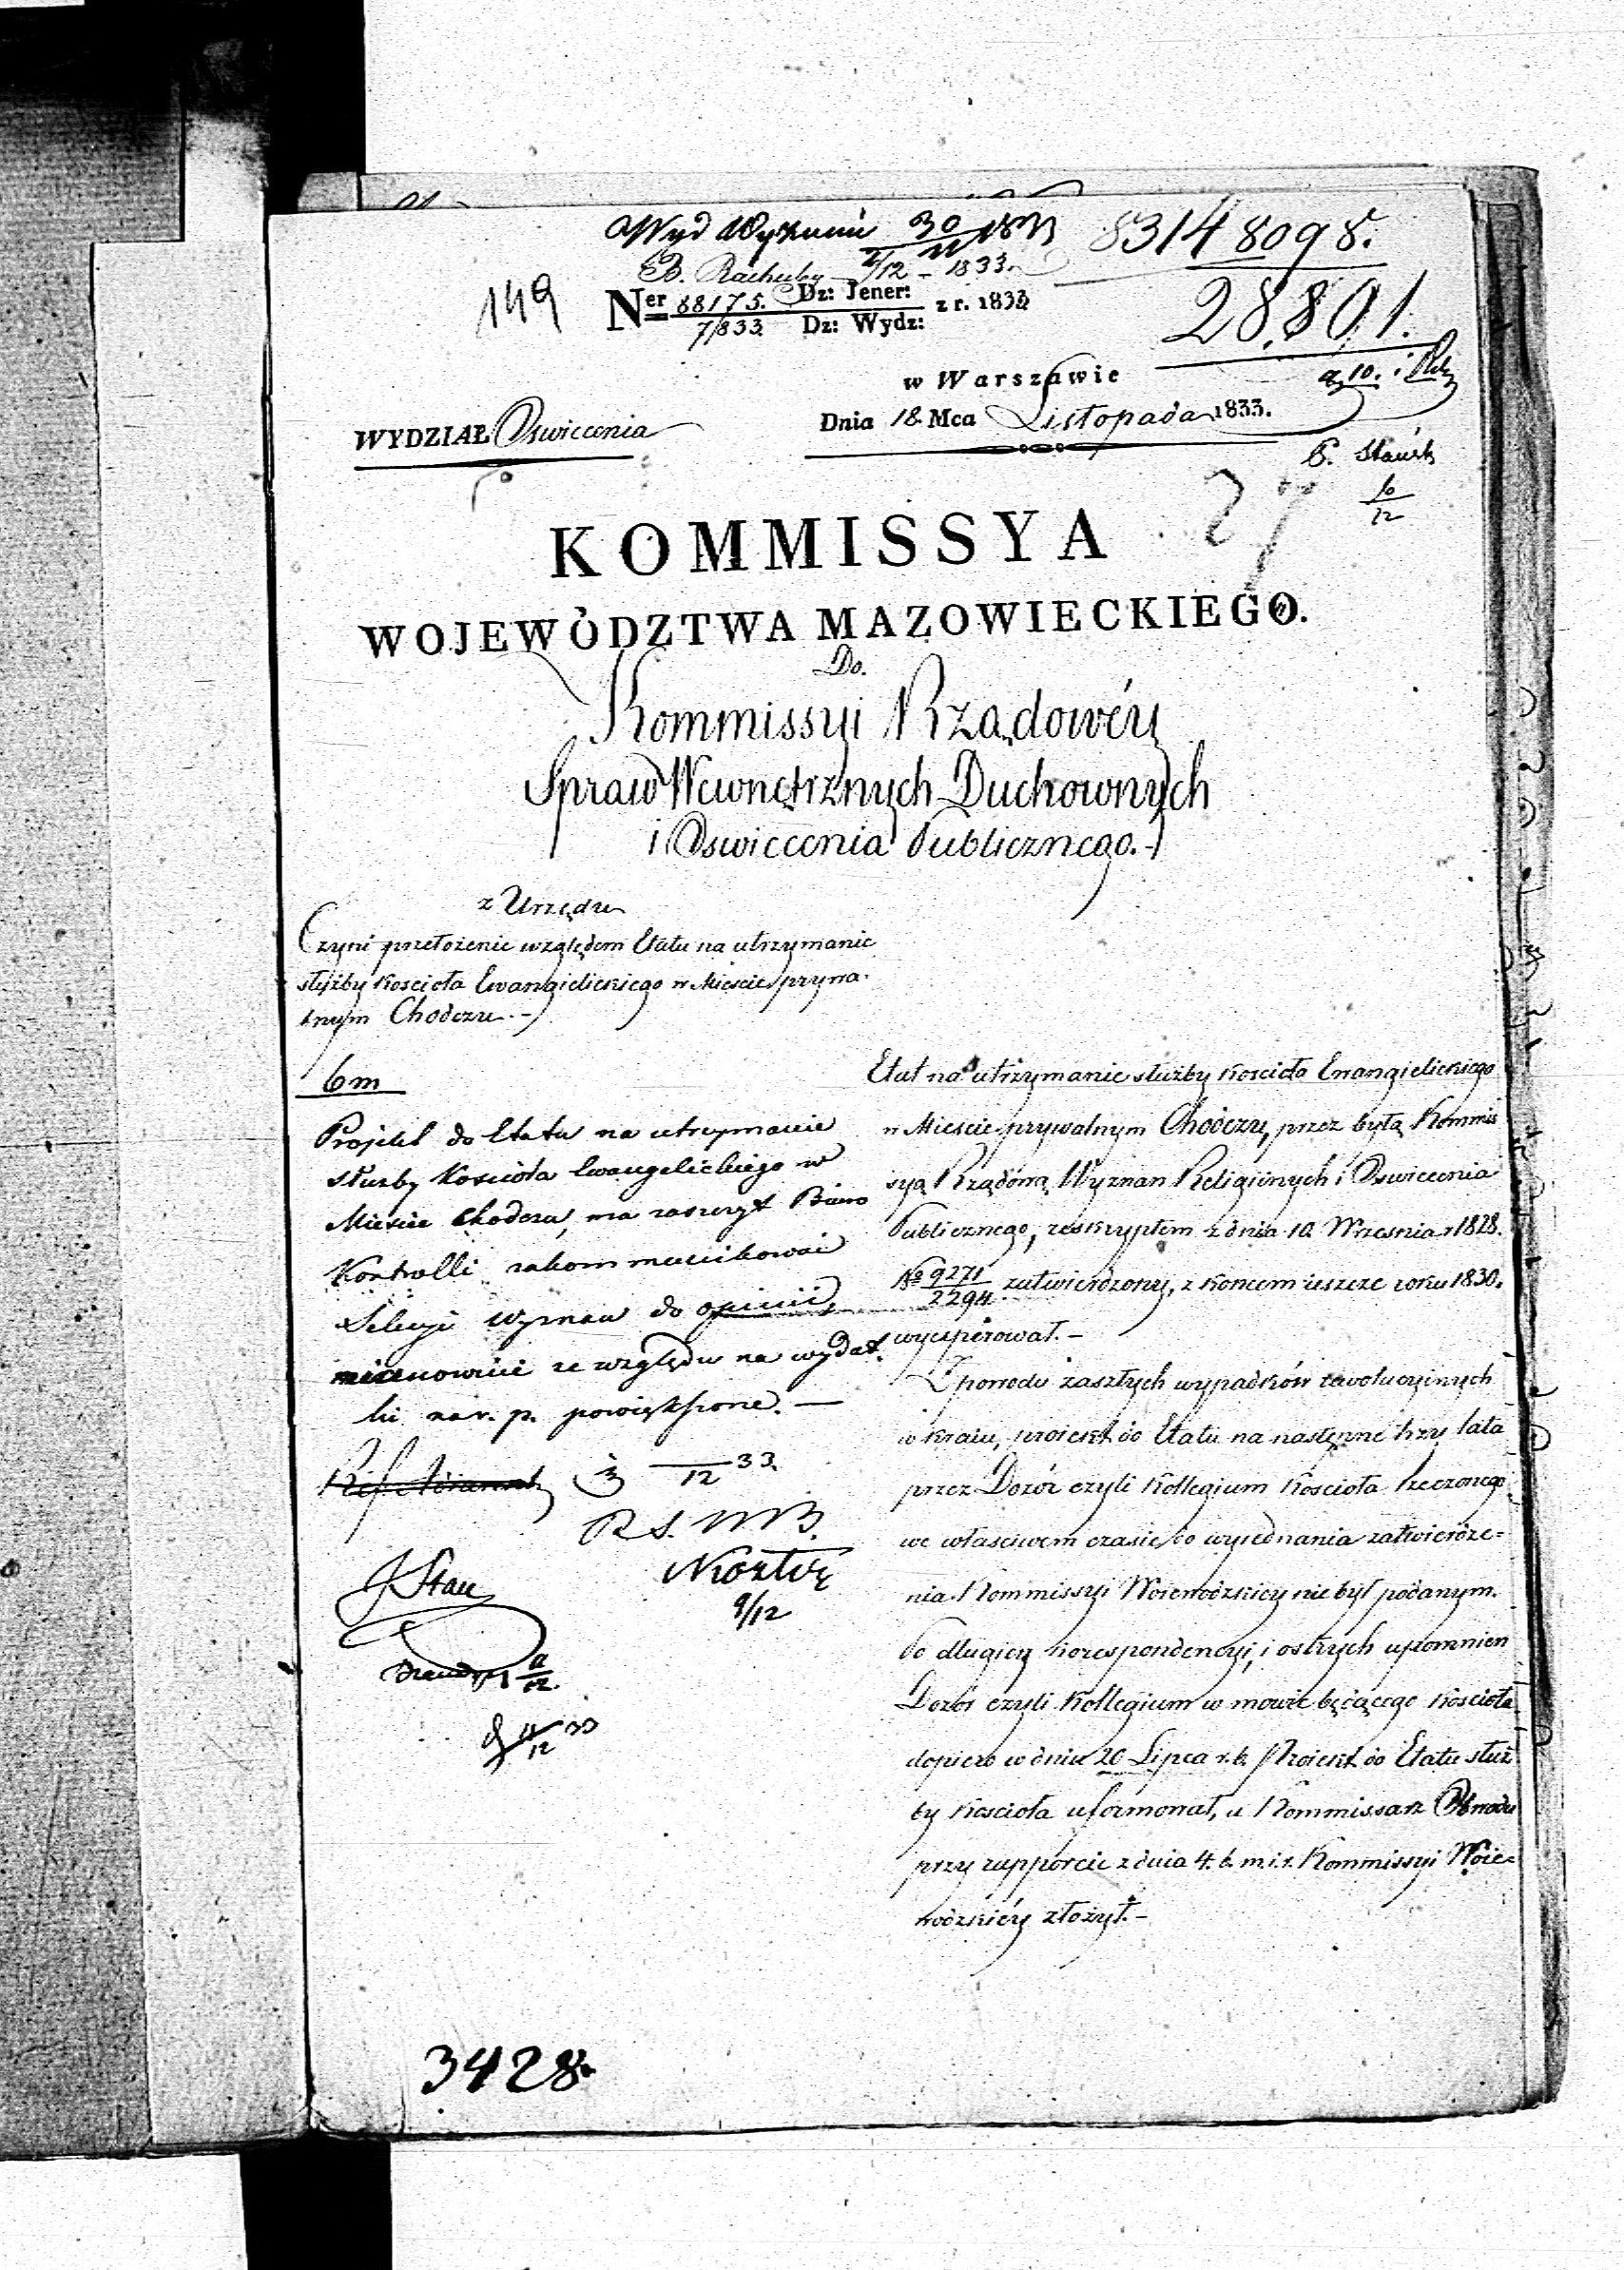 Wyd Wyznań 30/11 1833
8314 8098.
B. Rachuby 2/12 - 1833.
28,801.
149
Ner 88175. Dz: Jener: z r. 1833
7/833 Dz: Wydz:
w Warszawie
WYDZIAŁ Oswiecenia
Dnia 18. Mca Listopada 1833.
10/12
27
KOMMISSYA
WOJEWÓDZTWA MAZOWIECKIEGO.
Do.
Kommissyi Rządowéy
Spraw Wewnętrznych Duchownych
i Oswiecenia Publicznego.-
z Urzędu
Czyni przełożenie względem Etatu na utrzymanie
służby Kościoła Ewangielickiego w Mieście prywa-
tnym Chodczu.-
6m
Projekt do Etatu na utrzymanie
służby Kościoła Ewangelickiego w
Mieście Chodczu, ma zaszczyt Biuro
Kontrolli zakommunikować
Sekcyi Wyznań do opinii,
mianowicie ze względu na wydat-
ki na r. p. powiększone. —
3/12 33.
9/12
11/12 33
Etat na utrzymanie służby Kościoła Ewangielickiego
w Mieście prywatnym Chodczu, przez byłą Kommis
syą Rządową Wyznań Religiinych i Oswiecenia
Publicznego, reskryptem z dnia 10 Wrzesnia r 1828.
No 9271/2294 zatwierdzony, z końcem ieszcze roku 1830.
wyexpirował.-
Z powodu zaszłych wypadków rewolucyinych
w kraiu, proiekt do Etatu na następne trzy lata
przez Dozór czyli Kollegium Kościoła rzeczonego
we właściwem czasie do wyiednania zatwierdze-
nia Kommissyi Woiewódzkiey nie był podanym.
Po długiey korespondencyi, i ostrych upomnien
Dozór czyli Kollegium w mowie będącego Kościoła
dopiero w dniu 20 Lipca r. b. Proiekt do Etatu służ
by Kościoła uformował, a Kommissarz Obwodu
przy rapporcie z dnia 4. b. m. i r. Kommissyi Woie-
wódzkiéy złożył.-
3428.